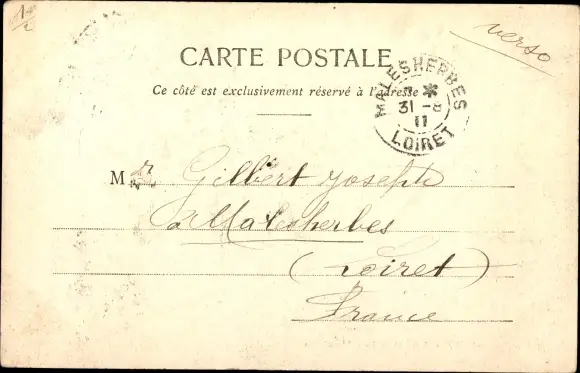 1/2
verso
CARTE POSTALE
Ce côté est exclusivement réservé à l'adresse
MALESHERBES
31 - 8
11
LOIRET
M r Gilbert Joseph
à Malesherbes
(Loiret)
France